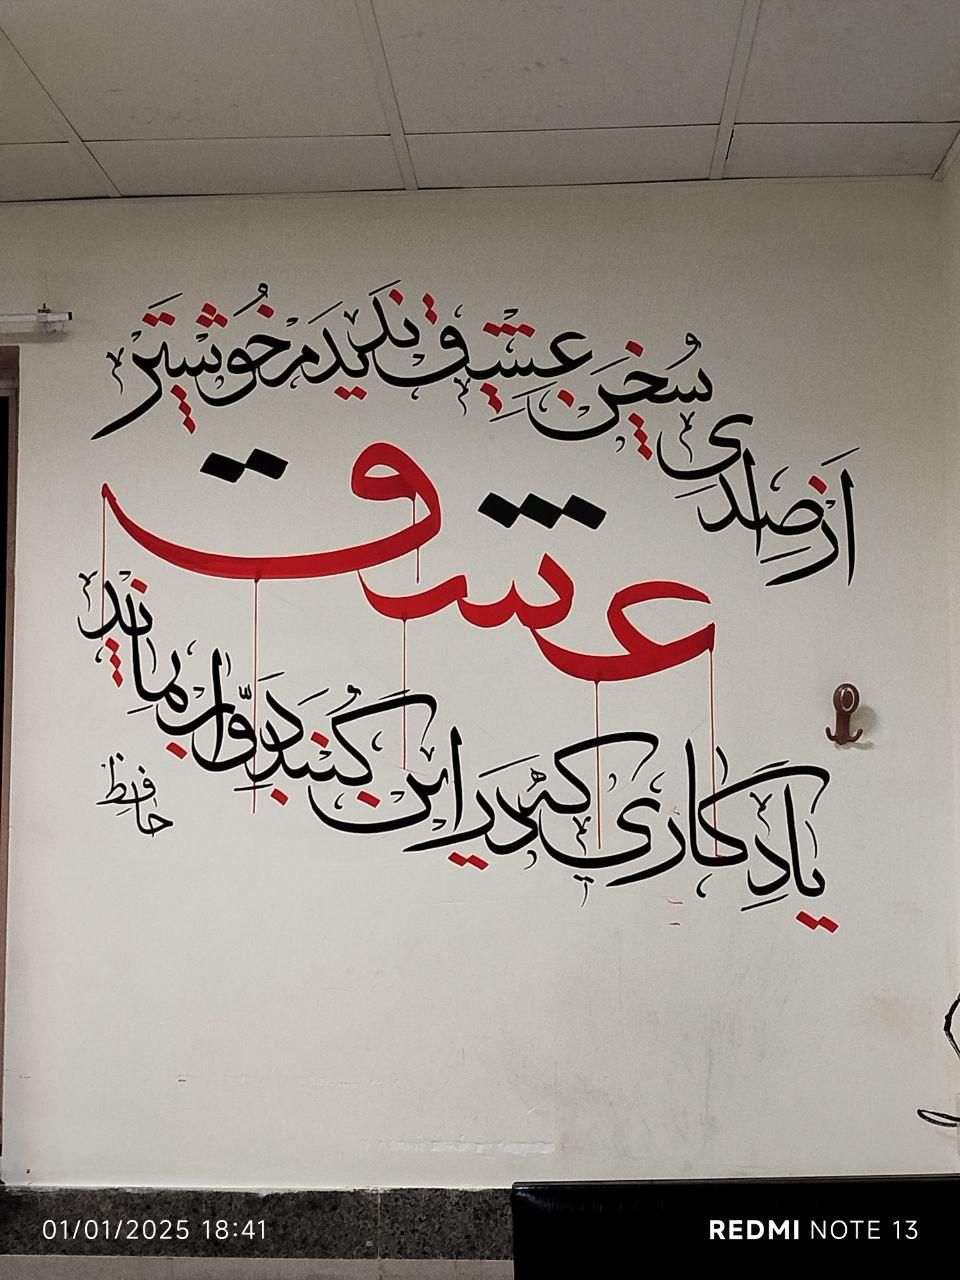 از صدای سخن عشق ندیدم خوشتر
عشق
یادگاری که در این گنبد دوار بماند
حافظ
01/01/2025 18:41
REDMI NOTE 13